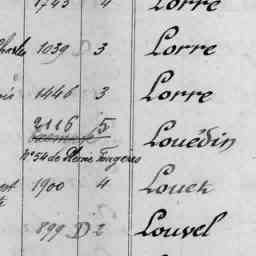 1745 4 Lorre
Charles 1039 D 3 Lorre
1446 3 Lorre
2116 5 Louédin
N° 54 de Pleine Fougères
1900 4 Louek
899 D 2 Louvel